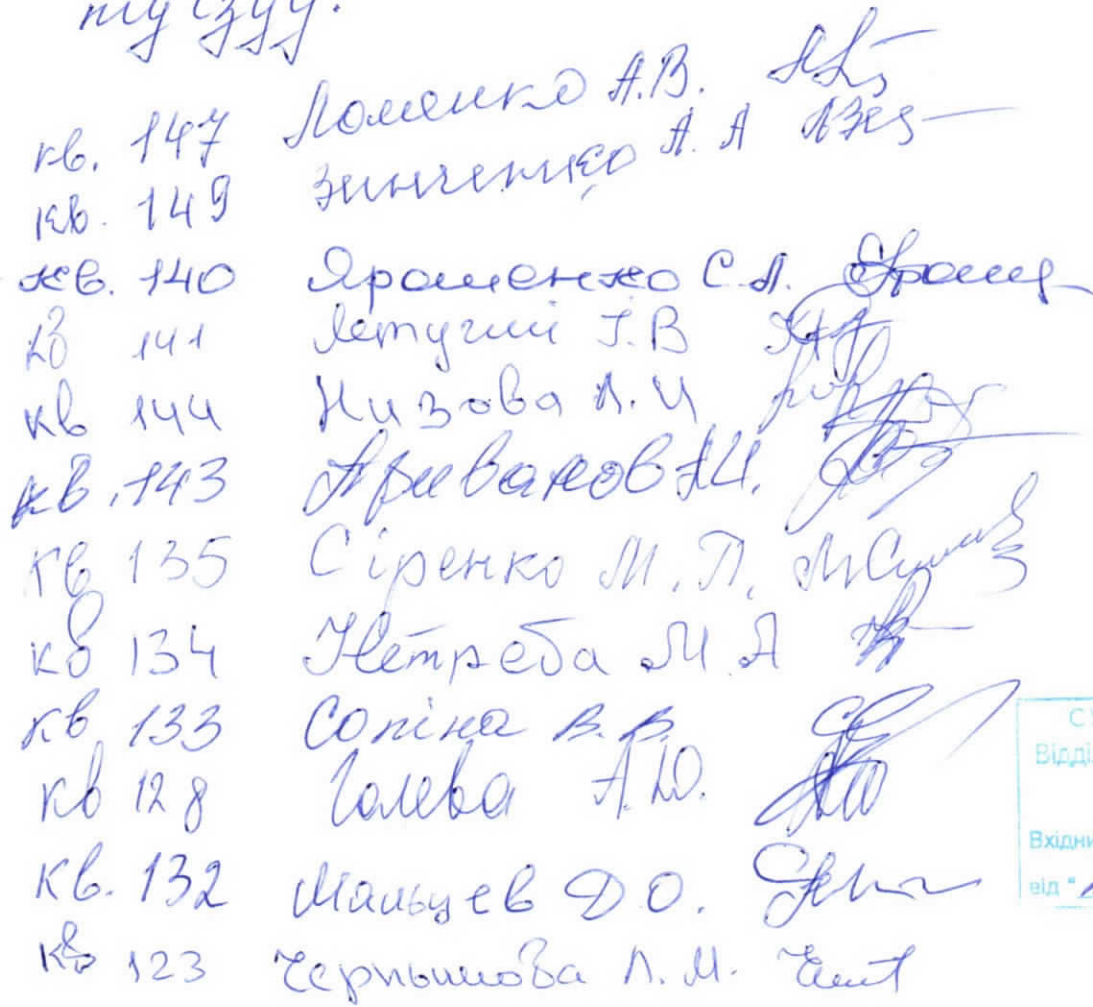 кв. 147 Ломенко А.В.
кв. 149 Зинченко А. А
кв. 140 Ярошенко С.А.
кв 141 Летучий І.В
кв 144 Низова Л.И
кв. 143
кв 135 Сіренко М. П.
кв 134 Нетреба М А
кв 133 Сопіна В. В.
кв 128 Голева А.Ю.
кв. 132 Мальцев Д О.
кв 123 Чернышова Л. М.
Відділ
Вхідни
від "